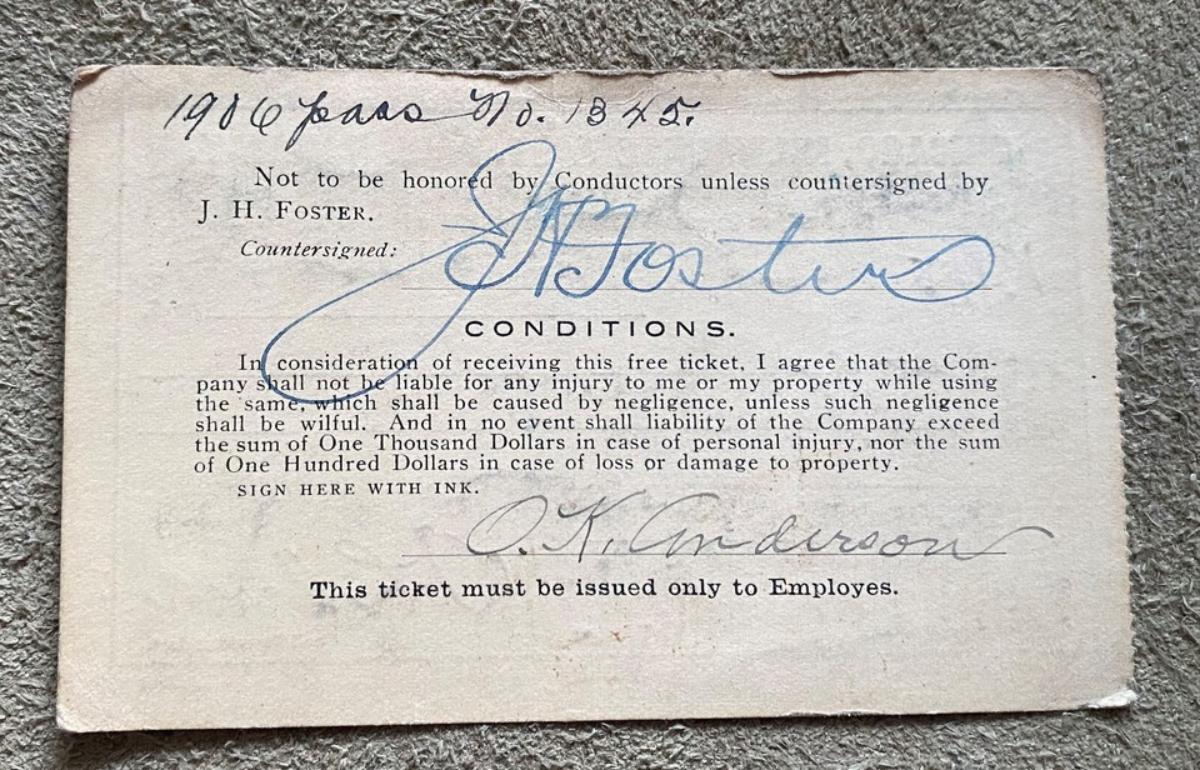 1906 pass No. 1345.
Not to be honored by Conductors unless countersigned by
J. H. FOSTER.
Countersigned: J H Foster
CONDITIONS.
In consideration of receiving this free ticket, I agree that the Com-
pany shall not be liable for any injury to me or my property while using
the same, which shall be caused by negligence, unless such negligence
shall be wilful. And in no event shall liability of the Company exceed
the sum of One Thousand Dollars in case of personal injury, nor the sum
of One Hundred Dollars in case of loss or damage to property.
SIGN HERE WITH INK.
O. K. Anderson
This ticket must be issued only to Employes.